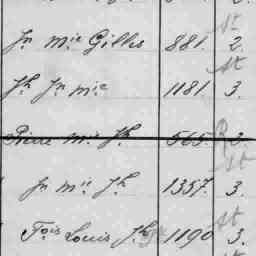 Jn mie Gillis 881. 2.
St
Jh Jn mie 1181 3.
St
Pierre mie Jh 565. 3.
St
Jn mie Jh 1357. 3.
St
Fois Louis Jh 1190 3.